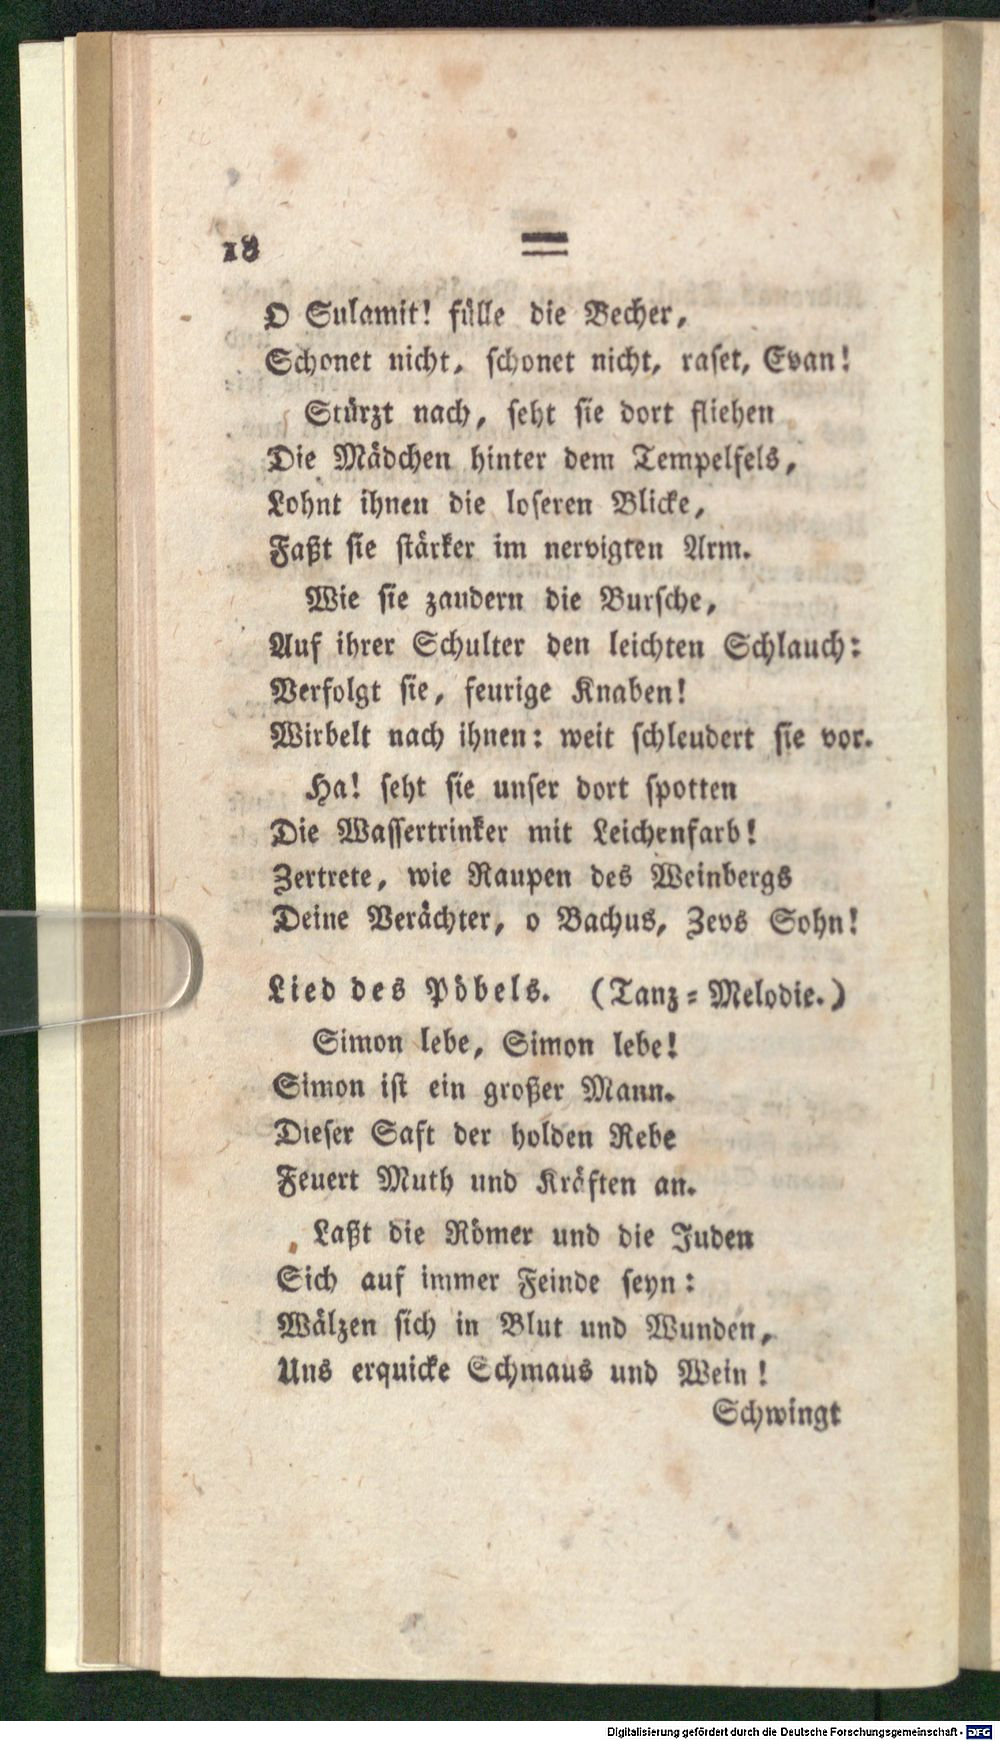 18
O Sulamit! fülle die Becher,
Schonet nicht, schonet nicht, raset, Evan!
Stürzt nach, seht sie dort fliehen
Die Mädchen hinter dem Tempelfels,
Lohnt ihnen die loseren Blicke,
Faßt sie stärker im nervigten Arm.
Wie sie zaudern die Bursche,
Auf ihrer Schulter den leichten Schlauch:
Verfolgt sie, feurige Knaben!
Wirbelt nach ihnen: weit schleudert sie vor.
Ha! seht sie unser dort spotten
Die Wassertrinker mit Leichenfarb!
Zertrete, wie Raupen des Weinbergs
Deine Verächter, o Bachus, Zevs Sohn!
Lied des Pöbels. (Tanz-Melodie.)
Simon lebe, Simon lebe!
Simon ist ein großer Mann.
Dieser Saft der holden Rebe
Feuert Muth und Kräften an.
Laßt die Römer und die Juden
Sich auf immer Feinde seyn:
Wälzen sich in Blut und Wunden,
Uns erquicke Schmaus und Wein!
Schwingt
Digitalisierung gefördert durch die Deutsche Forschungsgemeinschaft - DFG